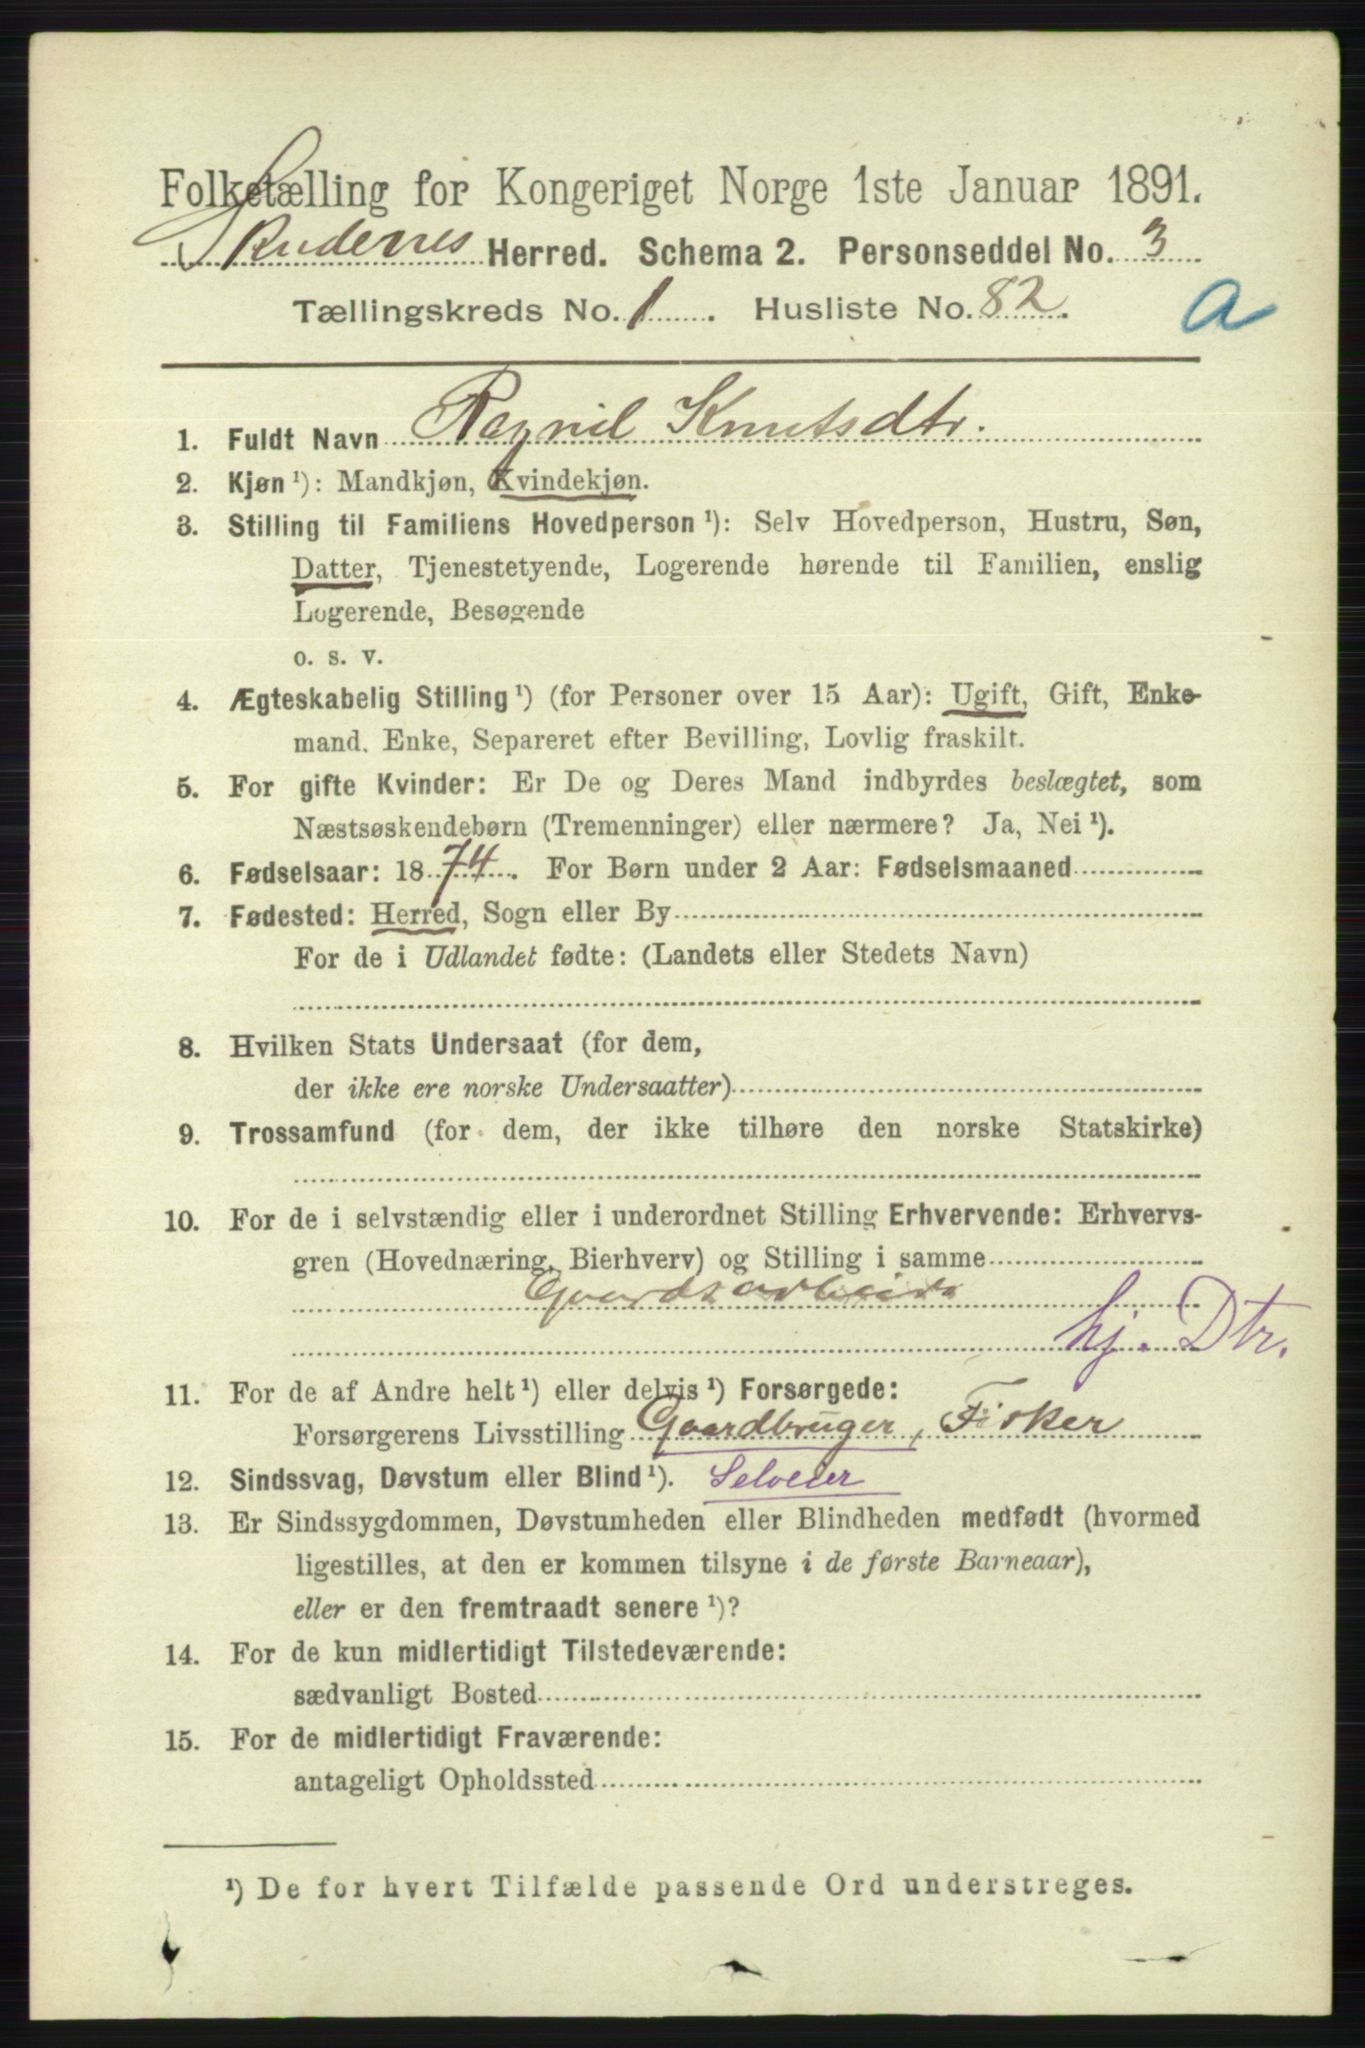 Folketælling for Kongeriget Norge 1ste Januar 1891.
Skudenes Herred. Schema 2. Personseddel No. 3
Tællingskreds No. 1. Husliste No. 82.
a
1. Fuldt Navn Ragnil Knutsdtr.
2. Kjøn ¹): Mandkjøn, Kvindekjøn.
3. Stilling til Familiens Hovedperson ¹): Selv Hovedperson, Hustru, Søn,
Datter, Tjenestetyende, Logerende hørende til Familien, enslig
Logerende, Besøgende
o. s. v.
4. Ægteskabelig Stilling ¹) (for Personer over 15 Aar): Ugift, Gift, Enke-
mand. Enke, Separeret efter Bevilling, Lovlig fraskilt.
5. For gifte Kvinder: Er De og Deres Mand indbyrdes beslægtet, som
Næstsøskendebørn (Tremenninger) eller nærmere? Ja, Nei ¹).
6. Fødselsaar: 1874. For Børn under 2 Aar: Fødselsmaaned
7. Fødested: Herred, Sogn eller By
For de i Udlandet fødte: (Landets eller Stedets Navn)
8. Hvilken Stats Undersaat (for dem,
der ikke ere norske Undersaatter)
9. Trossamfund (for dem, der ikke tilhøre den norske Statskirke)
10. For de i selvstændig eller i underordnet Stilling Erhvervende: Erhvervs-
gren (Hovednæring, Bierhverv) og Stilling i samme
Gaardsarbeide
hj. Dtr.
11. For de af Andre helt ¹) eller delvis ¹) Forsørgede:
Forsørgerens Livsstilling Gaardbruger, Fisker
12. Sindssvag, Døvstum eller Blind ¹). Selveier
13. Er Sindssygdommen, Døvstumheden eller Blindheden medfødt (hvormed
ligestilles, at den er kommen tilsyne i de første Barneaar),
eller er den fremtraadt senere ¹)?
14. For de kun midlertidigt Tilstedeværende:
sædvanligt Bosted
15. For de midlertidigt Fraværende:
antageligt Opholdssted
¹) De for hvert Tilfælde passende Ord understreges.